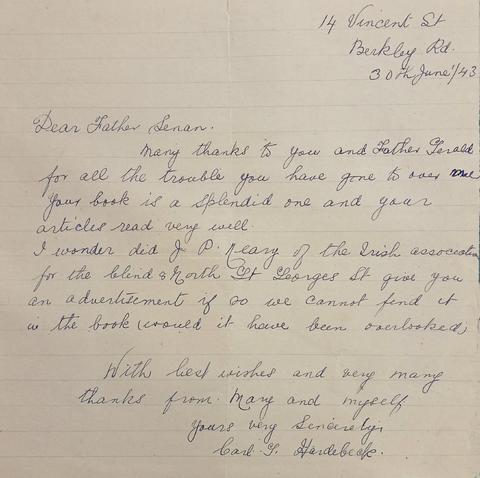 14 Vincent St
Berkley Rd.
30th June/43
Dear Father Senan.
Many thanks to you and Father Gerald
for all the trouble you have gone to over me
Your book is a splendid one and your
articles read very well.
I wonder did J. P. Neary of the Irish association
for the blind 8 North Gt Georges St give you
an advertisement if so we cannot find it
in the book (would it have been overlooked)
With best wishes and very many
thanks from Mary and myself
Yours very Sincerely,
Carl. G. Hardebeck.